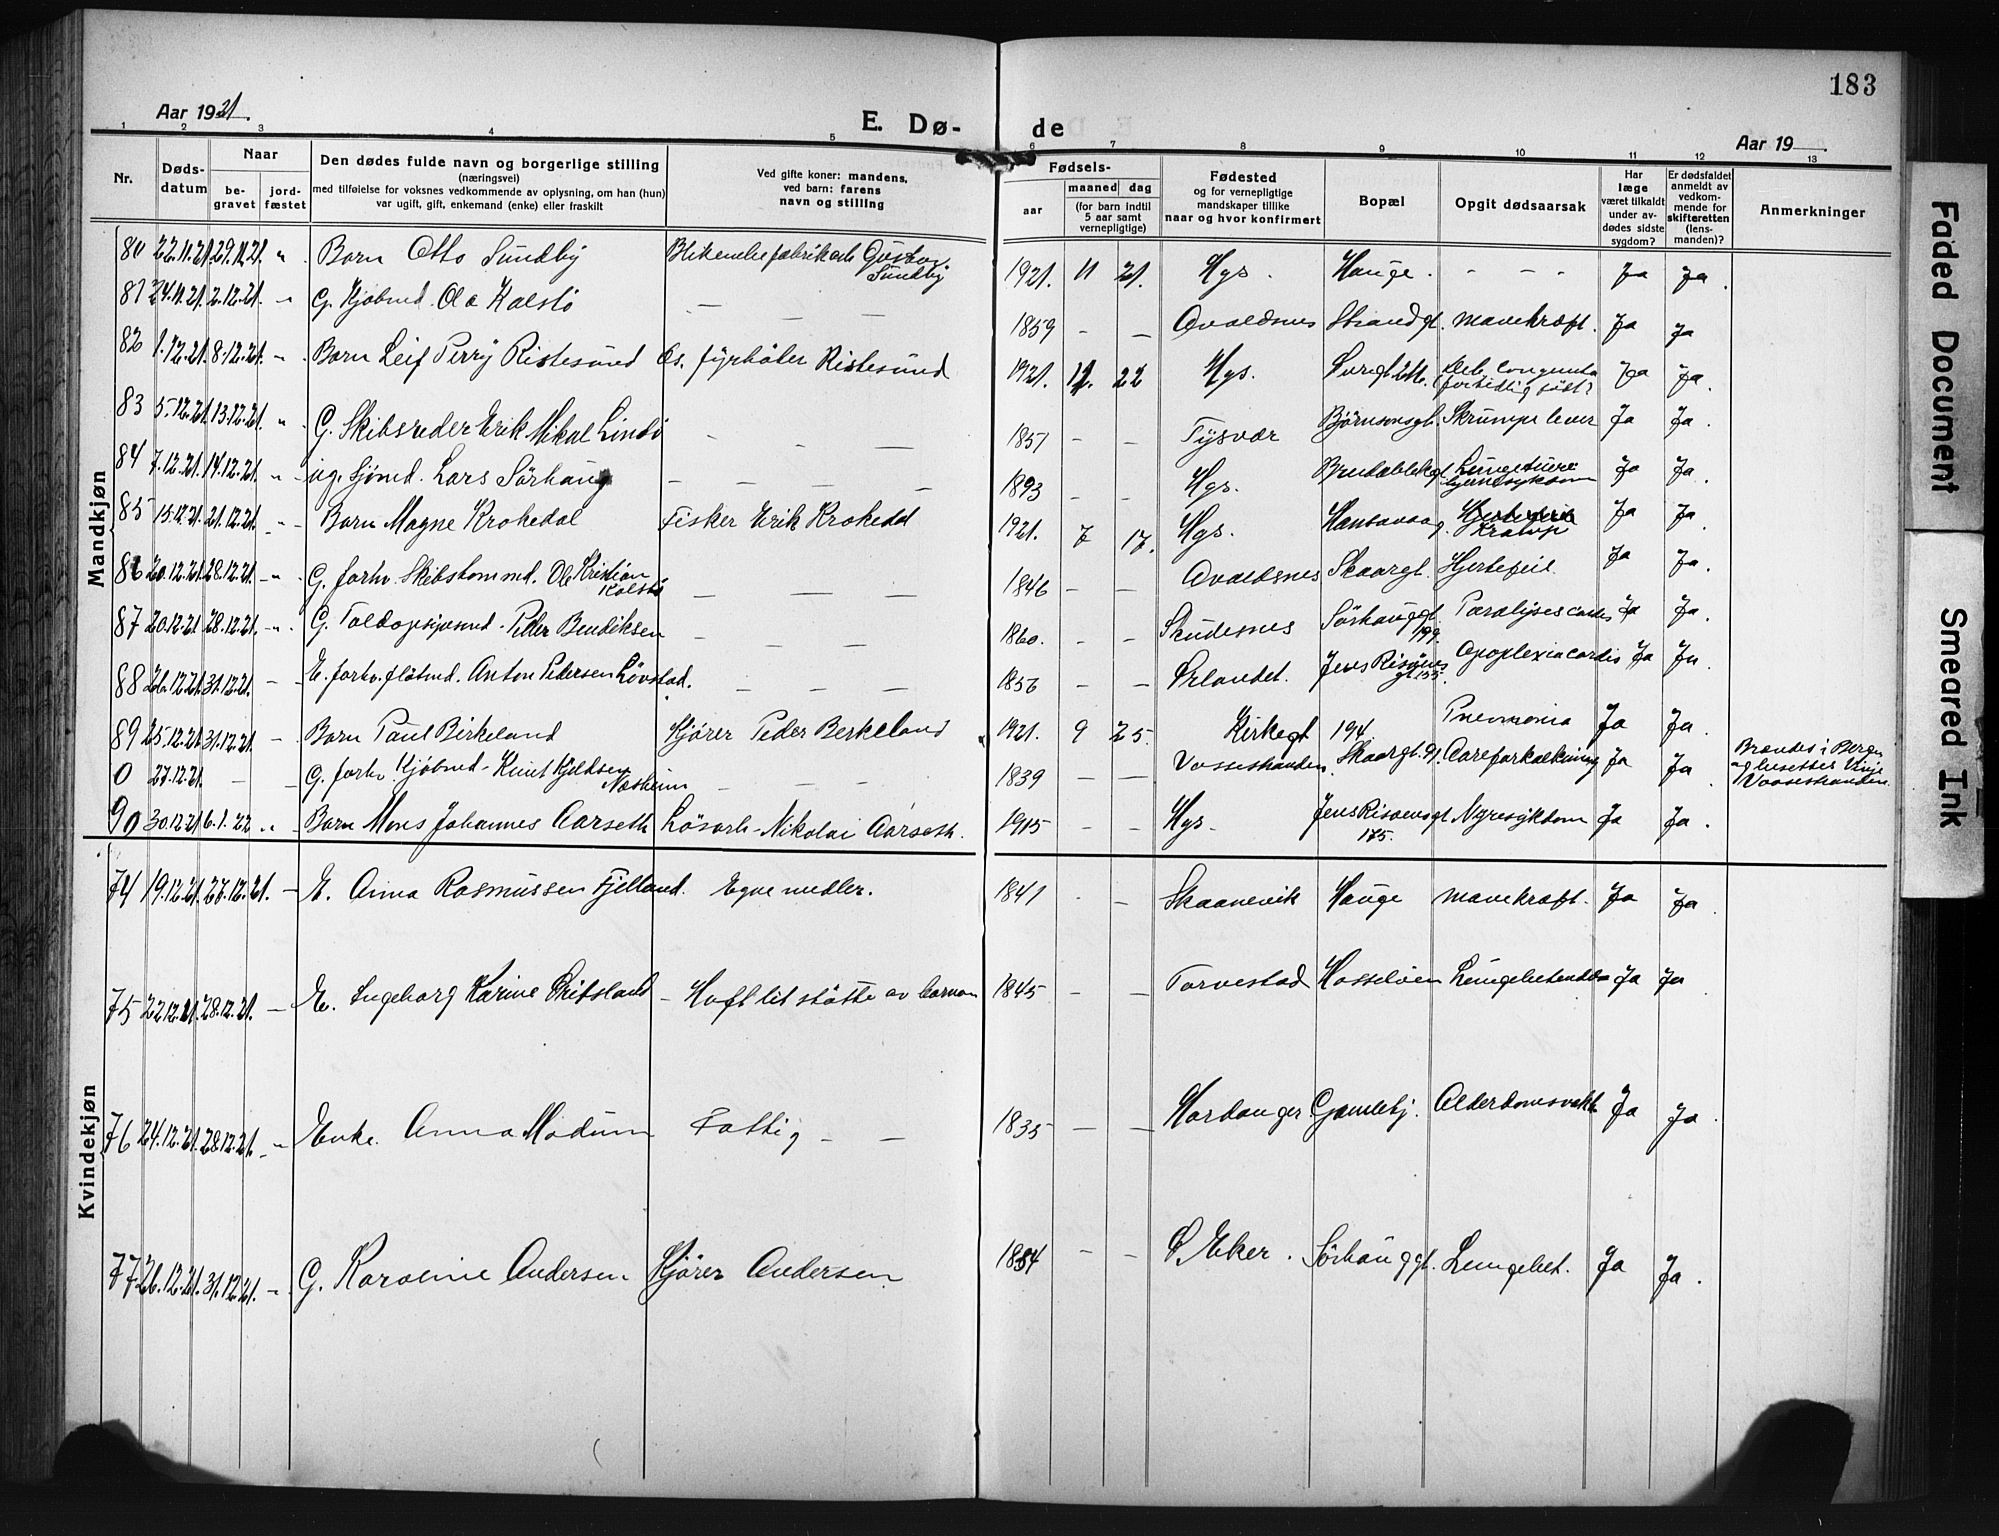 183
Aar 1921.
E. Dø- de
Aar 19
1 2 3 4 5 6 7 8 9 10 11 12 13
Nr.
Døds-
datum
Naar
be-
gravet
jord-
fæstet
Den dødes fulde navn og borgerlige stilling
(næringsvei)
med tilføielse for voksnes vedkommende av oplysning, om han (hun)
var ugift, gift, enkemand (enke) eller fraskilt
Ved gifte koner: mandens,
ved barn: farens
navn og stilling
Fødsels-
aar
maaned dag
(for barn indtil
5 aar samt
vernepligtige)
Fødested
og for vernepligtige
mandskaper tillike
naar og hvor konfirmert
Bopæl
Opgit dødsaarsak
Har
læge
været tilkaldt
under av-
dødes sidste
sygdom?
Er dødsfaldet
anmeldt av
vedkom-
mende for
skifteretten
(lens-
manden)?
Anmerkninger
Mandkjøn
80 22.11.21. 29.11.21. " Barn Otto Sundby Gustav Sundby 1921. 11 21. Hgs. Hauge. - - - Ja Ja.
81 24.11.21. 2.12.21. - G. Kjøbmd. Ola Kalstø — — — 1859 - — Avaldsnes Strandgt. Mavekræft. Ja Ja
82 1.12.21. 8.12.21. " Barn Leif Perry Ristesund Os. fyrbøter Ristesund 1921. 12. 22 Hgs. Ja Ja.
83 5.12.21. 13.12.21. " G. Skibsreder Erik Mikal Lindø - - — 1857 - - Tysvær Bjørnsonsgt. Skrumpelever Ja Ja.
84 7.12.21. 14.12.21. " ug. Sjømd. Lars Sørhaug — — — — 1893 - - Hgs. Ja Ja.
85 15.12.21. 21.12.21. - Barn Magne Krokedal Fisker Erik Krokedal 1921. 7 17. Hgs. Ja Ja.
86 20.12.21. 28.12.21. " G. forhv. Skibstømmd. Ole Kristian Kalstø — — — 1846 - — Avaldsnes Skaargt. Hjertefeil. Ja Ja.
87 20.12.21 28.12.21. " G. Peder Bendiksen — — — 1860. - - Skudesnes Sørhauggt. 199. Paralyses cordis Ja Ja.
88 26.12.21. 31.12.21. - E. forhv. Anton Pedersen Løvstad. — — — 1856 - — Jens Risøens gt 155. Apoplexia cordis Ja Ja.
89 25.12.21 31.12.21. - Barn Paul Birkeland Kjører Peder Berkeland 1921. 9 25. Kirkegt 194. Pneumonia Ja Ja.
0 27.12.21. — - G. forhv. Kjøbmd. Knut Kjeldsen Næsheim — — — 1839 — — Vossestranden. Skaargt. 91. Aareforkalkning Ja Ja. Brændes i Bergen
og bisettes Vinje
Vossestranden.
90 30.12.21 6.1.22 " - Barn Mons Johannes Aarseth Løsarb. Nikolai Aarseth. 1915 - - Hgs. Jens Risøensgt 175. Nyresykdom Ja Ja.
Kvindekjøn
74 19.12.21. 27.12.21. - E. Anna Rasmussen Fjelland. Egne midler. 1841 - - Skaanevik Hauge Mavekræft. Ja Ja.
75 22.12.21. 28.12.21. - E. Ingeborg Karine - Havt lit støtte av barna 1845 - — Torvestad Hasseløen Lungebetændelse Ja Ja.
76 24.12.21. 28.12.21. " Enke. Anna Modum Fattig - - 1835 — — Hardanger Gamlehj. Ja Ja.
77 26.12.21. 31.12.21. - G. Karoline Andersen Kjører Andersen 1884 - - Ø. Eker. Sørhauggt. Lungebet. Ja Ja.
Faded Document
Smeared Ink